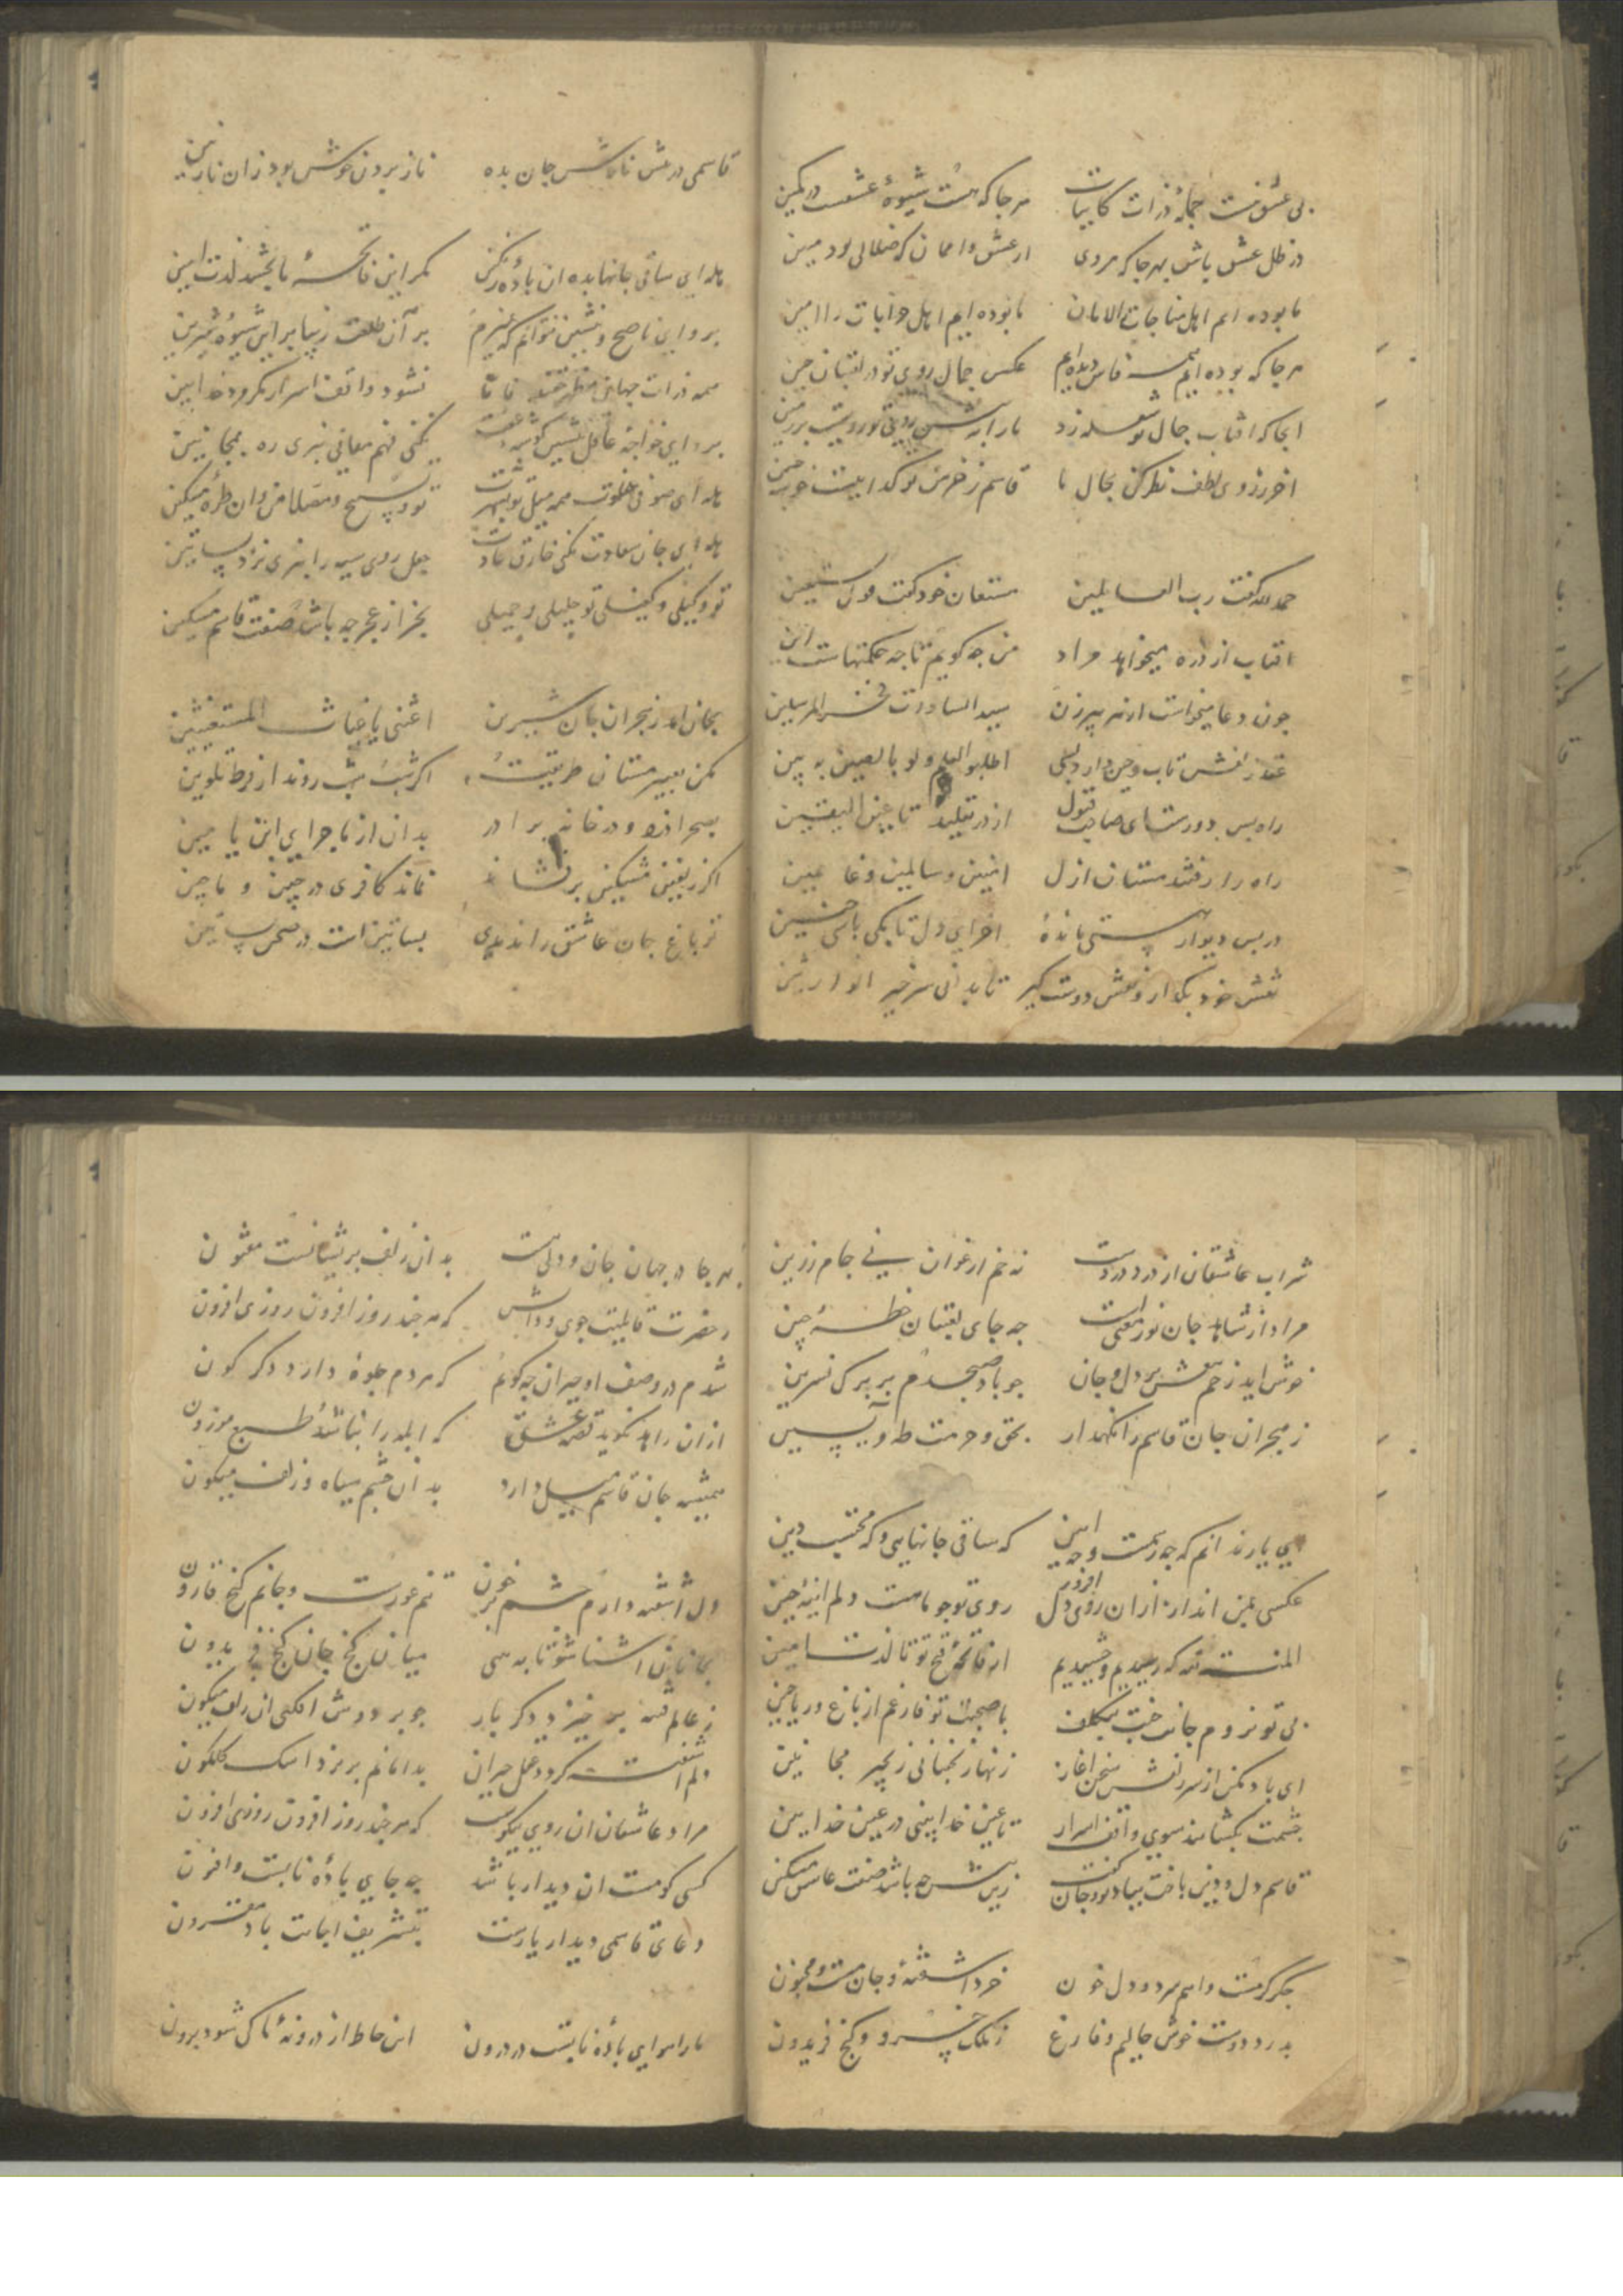 بی عشق نیست جمله ذرات کاینات هرجا که هست شیوهٔ عشقست در کمین
در ظل عشق باش بهرجا که میروی
ما بوده ایم اهل مناجات الامان ما بوده ایم اهل خرابات را امین
هرجا که بوده ایم همه فاش دیده ایم عکس جمال روی تو در لعبتان چین
انجا که افتاب جمال تو شعله زد
اخر ز روی لطف نظر کن بحال ما قاسم ز خرمن تو کدائیست خوشه چین
حمد لله گفت رب العالمین مستعان خود گفت هم نستعین
افتاب از ذره میخواهد مراد من چه گویم تا چه حکمتهاست این
چون دعا میخواست از هر پیرزن سید السادات فخر المرسلین
عقد زلفش تاب و چین دارد بسی اطلبوا العلم ولو بالصین به بین
راه بس دورست ای صاحب قبول از در تقلید تا عین الیقین
راه را رفتند مستان ازل امنین و سالمین و غانمین
در پس دیوار هستی ماندهٔ اخر ای دل تا بکی باشی چنین
نقش خود بگذار و نقش دوست گیر تا بدانی سر خیر الوارثین
قاسمی در عشق نامش جان بده ناز بردن خوش بود زان نازنین
هله ای ساقی جانها بده ان بادهٔ رنگین مگر این فاتحهٔ ما بخشد لذت امین
برو ای ناصح و بنشین نتوانم که گریزم بر آن طلعت زیبا بر این شیوهٔ شیرین
همه ذرات جهان نشود واقف اسرار مگر مرد خدابین
برو ای خواجهٔ عاقل بنشین گوشهٔ نکنی فهم معانی نبری ره بمجانین
هله ای صوفی خلوت همه میل تو تو و تسبیح و مصلا من و ان طرهٔ مشکین
هله ای جان سعادت نکنی خارق عادت جعل روی سیه را نبری نزد بساتین
تو وکیلی و کفیلی تو جلیلی و جمیلی بجز از عجز چه باشد صفت قاسم مسکین
بجان امد ز هجران جان شیرین اغثنی یا غیاث المستغیثین
مکن تعییر مستان طریقت اگر شب شب روند از فرط تلوین
بصحرا ذره و در خانه برادر بدان از ماجرای این یا میین
اگر زلفین مشکین برفشاند نماند کافری در چین و ماچین
تو باغ جان عاشق را ندیدی بساتین است در صحن بساتین
شراب عاشقان از درد دردست نه خم ارغوان نی جام زرین
مراد از شاهد جان نور معنی است چه جای لعبتان خطهٔ چین
خوش اید زخم عشقش بر دل و جان چو باد صبحدم بر برگ نسرین
ز هجران جان قاسم را نگهدار بحق و حرمت طه و یسین
ای یار ندانم که چه رسمت و چه ایین که ساقی جانهایی و که محتسب دین
عکسی بمن انداز از ان روی دل افروز روی تو چو ماهست و دلم اینهٔ چین
المنة لله که رسیدیم و چشیدیم از فاتحهٔ فتح تو تا لذت امین
بی تو نروم جانب جنت بتکلف با صحبت تو فارغم از باغ و ریاحین
ای باد مکن از سر زلفش سخن اغاز زنهار نجنبانی زنجیر مجانین
چشمت بگشایند سوی واقف اسرار تا عین خدابینی در عین خدابین
قاسم دل و دین باخت بسودای تو جان زین بیش چه باشد صفت عاشق مسکین
جگر گرمست و اهم سرد و دل خون خرد اشفته و جان مست و مجنون
بدرد دوست خوش حالیم و فارغ ز ملک خسرو و گنج فریدون
بهر جا در جهان جان و دلی هست بدان زلف پریشانست مفتون
ز حضرت قابلیت جوی و دانش که هر چند روز افزون روزی افزون
شدم در وصف او حیران چه گویم که هر دم جلوهٔ دارد دگر گون
ازان زاهد نگوید قصهٔ عشق که ابله را نباشد طبع موزون
همیشه جان قاسم میل دارد بدان چشم سیاه و زلف میگون
دل اشفته دارم چشم پر خون تنم عورست و جانم گنج قارون
بجانان اشنا شو تا به بینی میان گنج جان گنج فریدون
ز عالم فتنه برخیزد دگر بار چو بر دوش افکنی ان زلف میگون
دلم اشفته گردد عقل حیران بدامانم بریزد اشک گلگون
مراد عاشقان ان روی نیکوست که هر چند روز افزون روزی افزون
کسی کو مست ان دیدار باشد چه جای بادهٔ نابست و افیون
دعای قاسمی دیدار یارست بتشریف اجابت باد مقرون
ما را هوای بادهٔ نابست در درون این خاطر از درونهٔ ما کی شود برون